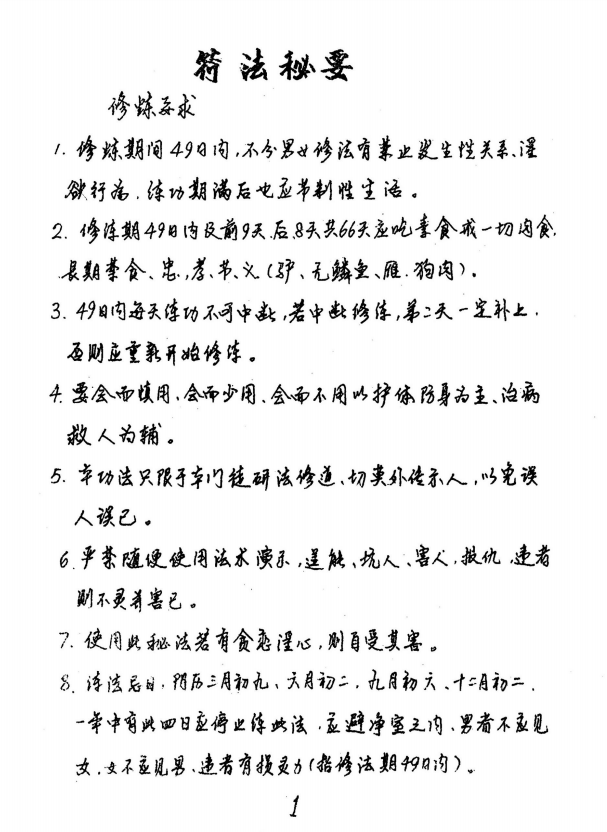 符法秘要
修炼要求
1. 修炼期间49日内,不分男女修法有禁止发生性关系、淫
欲行为,练功期满后也应节制性生活。
2. 修练期49日内及前9天后8天共66天应吃素食戒一切肉食,
长期禁食、忠,孝、节、义(驴、无鳞鱼、雁、狗肉)。
3. 49日内每天练功不可中断,若中断修练,第二天一定补上.
否则应重新开始修练。
4. 要会而慎用、会而少用、会而不用以护体防身为主、治病
救人为辅。
5. 本功法只限于本门徒研法修道、切莫外传示人,以免误
人误己。
6. 严禁随便使用法术演示,逞能、坑人、害人,报仇,违者
则不灵并害己。
7. 使用此秘法若有贪恋淫心,则自受其害。
8. 练法忌日,阴历三月初九、六月初二、九月初六、十二月初二.
一年中有此四日应停止练此法,应避净室之内、男者不应见
女、女不应见男、违者有损灵力(指修法期49日内)。
1